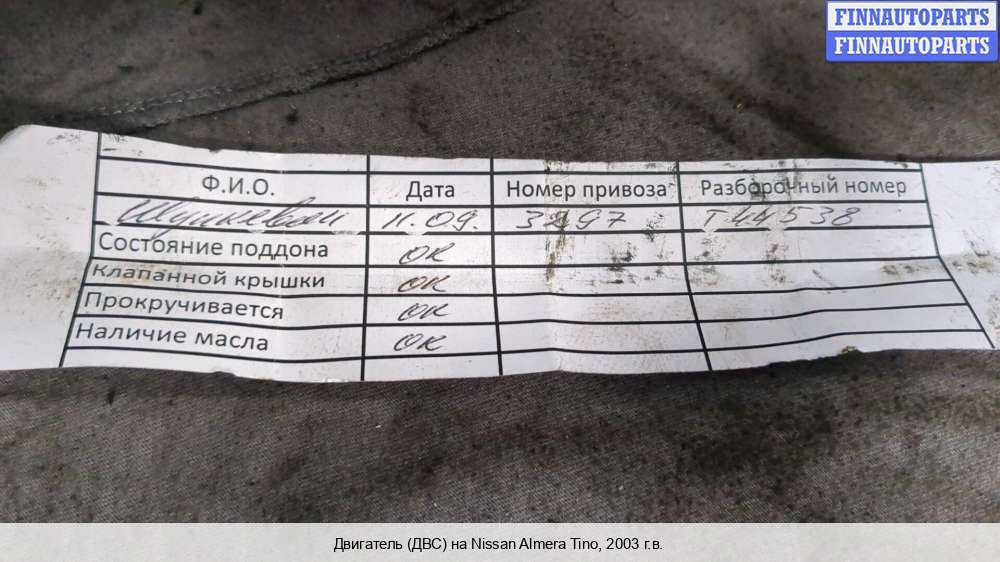 FINNAUTOPARTS
FINNAUTOPARTS
Ф.И.О. Дата Номер привоза Разборочный номер
11.09. 3297 T44538
Состояние поддона ок
Клапанной крышки ок
Прокручивается ок
Наличие масла ок
Двигатель (ДВС) на Nissan Almera Tino, 2003 г.в.